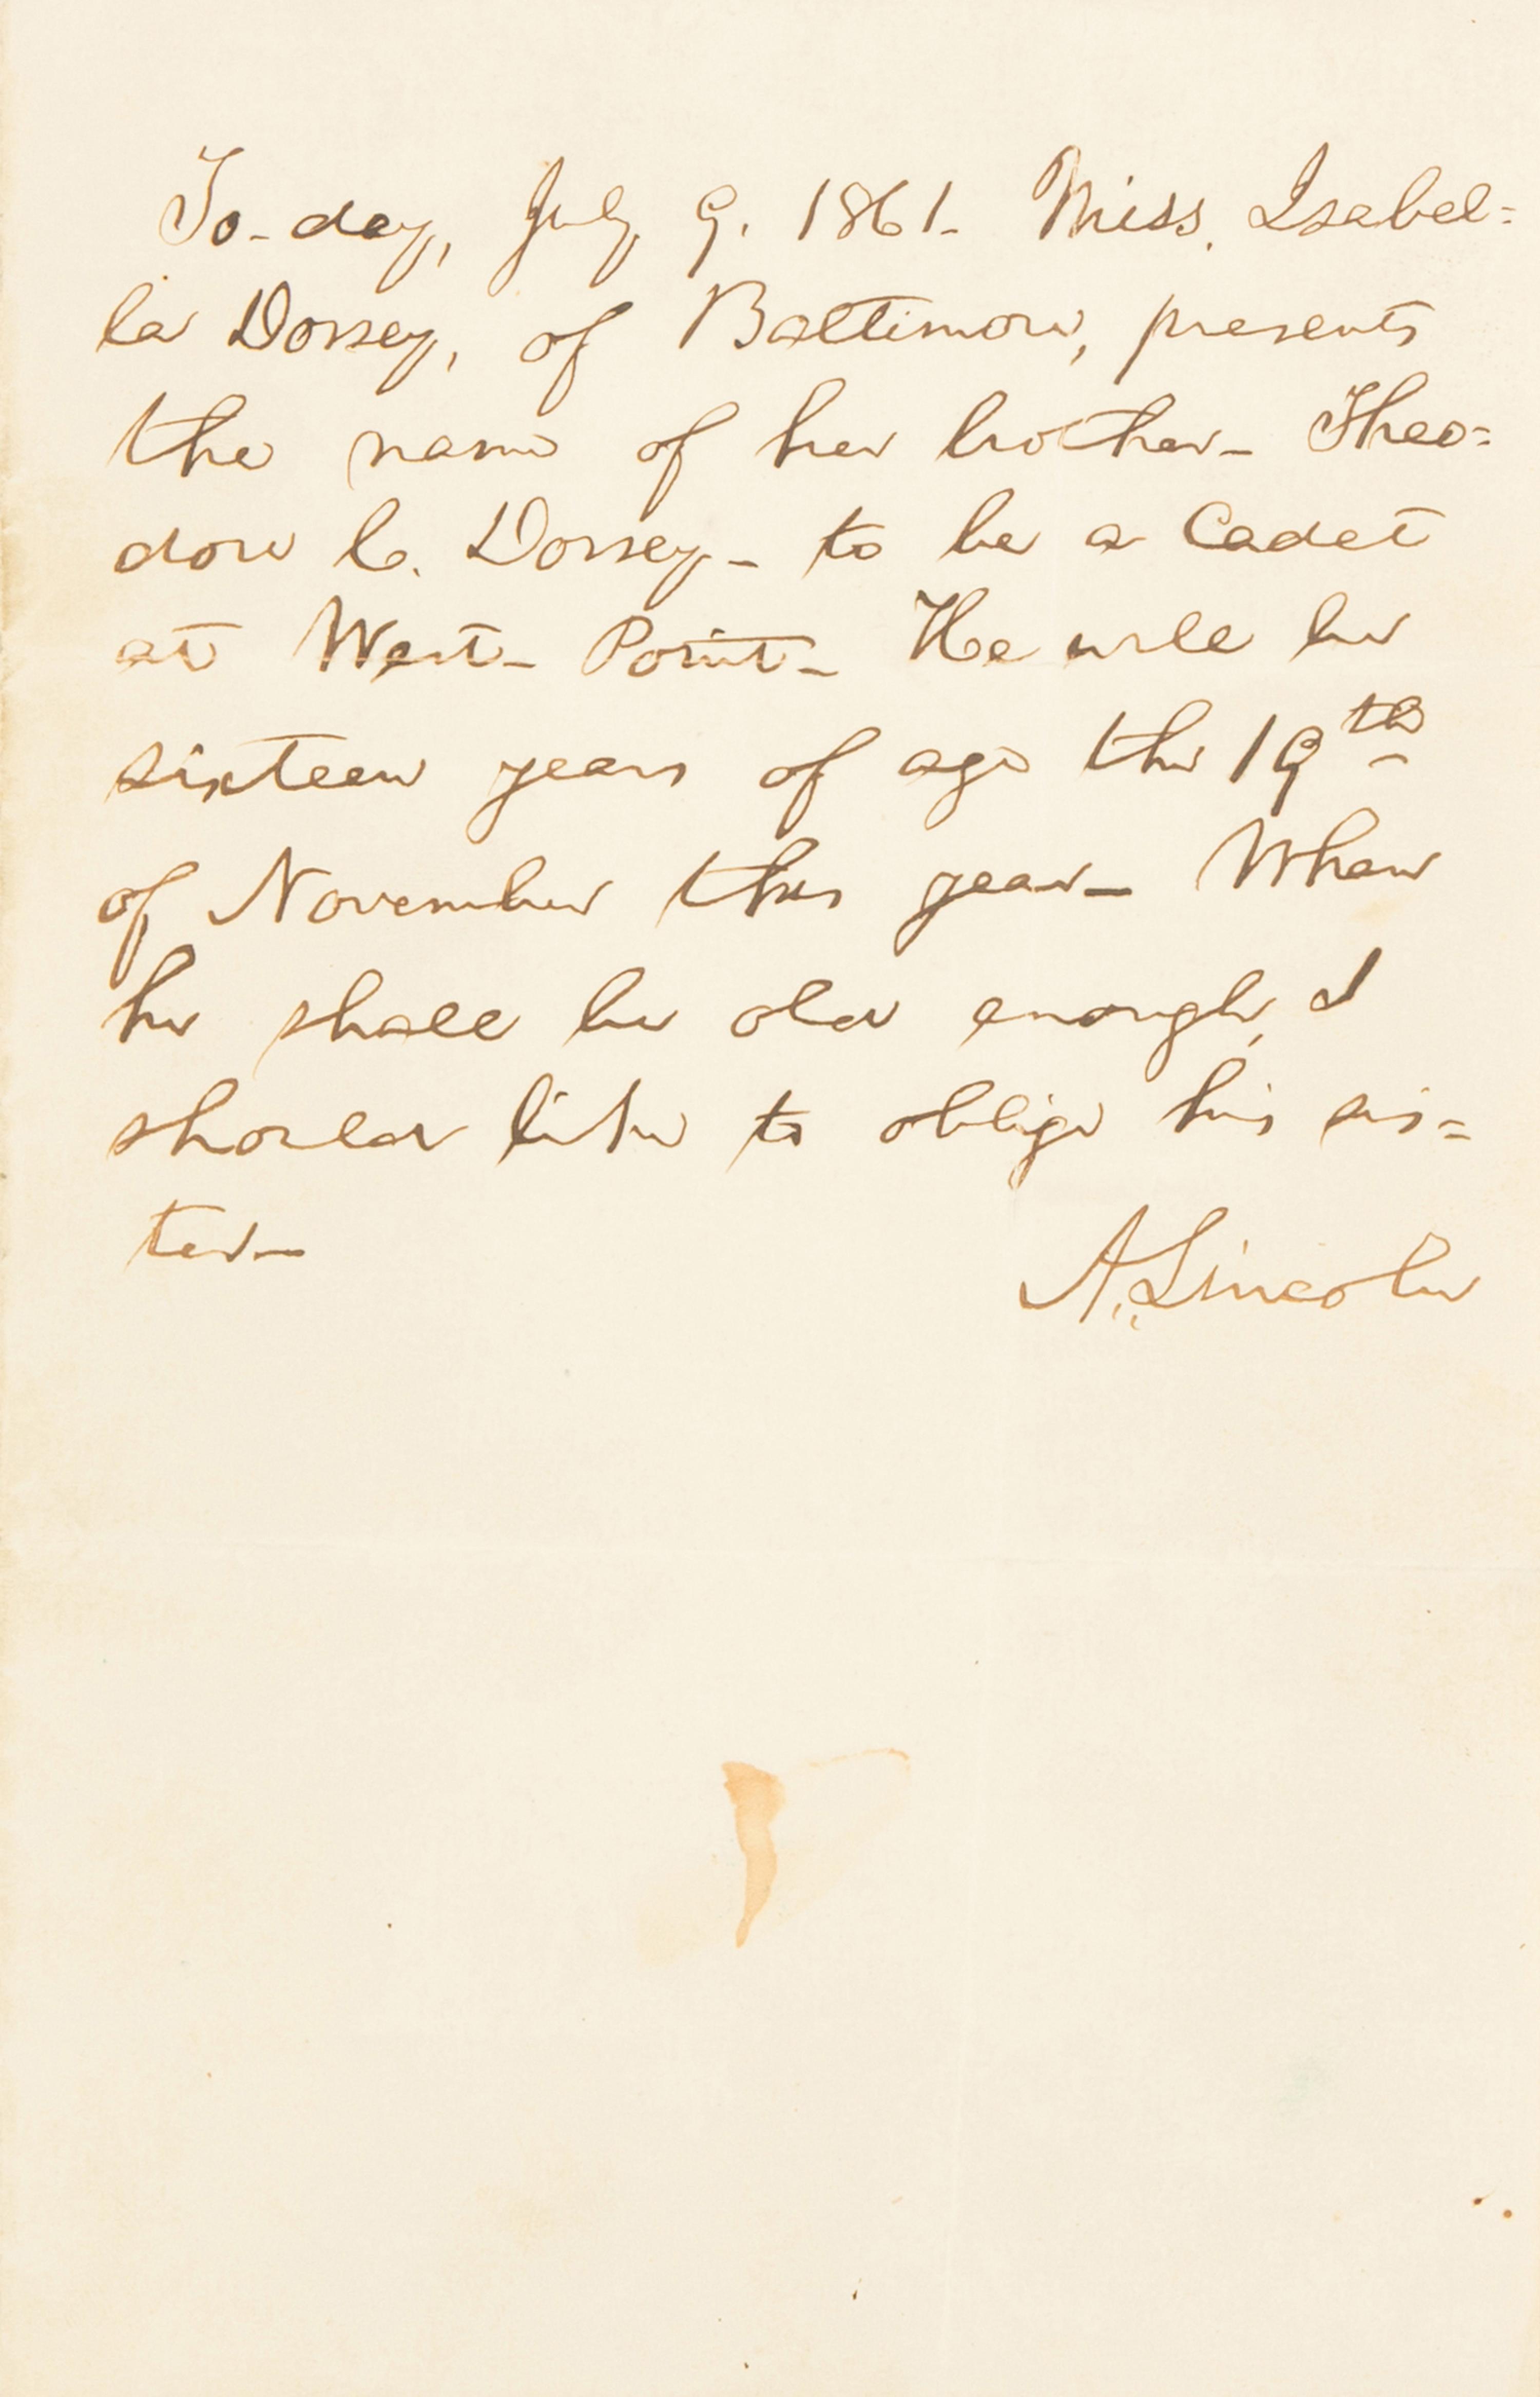 To-day, July 9. 1861- Miss. Isabel=
la Dorsey, of Baltimore, presents
the name of her brother- Theo=
dore C. Dorsey- to be a Cadet
at West-Point- He will be
sixteen years of age the 19th
of November this year- When
he shall be old enough, I
should like to oblige his sis=
ter-
A. Lincoln